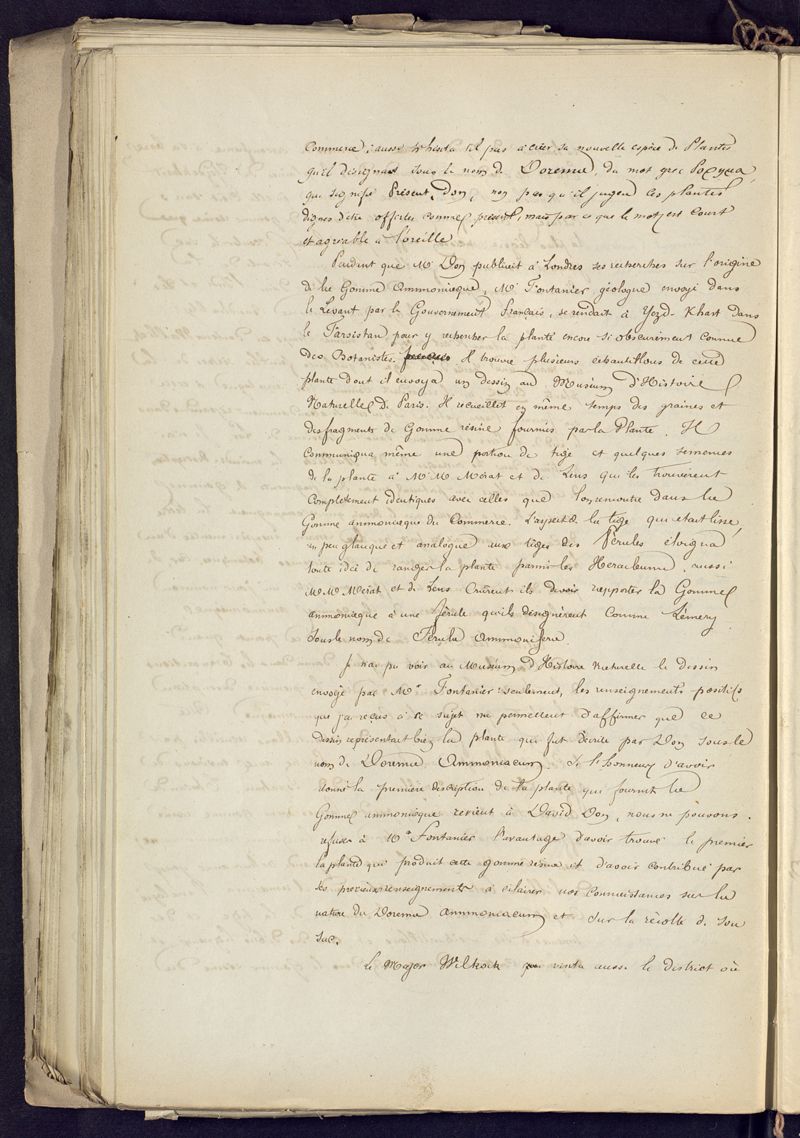 Commerce; aussi n'hésita-t-il pas à créer sa nouvelle espèce de Plantes
qu'il désigna sous le nom de Dorema, du mot grec
que signifie Présent, don, non pas qu'il jugea ces plantes
dignes d'être offertes comme présent, mais par ce que le mot est court
et agréable à l'oreille
Pendant que Mr Don publiait à Londres ses recherches sur l'origine
de la Gomme Ammoniaque, Mr Fontanier, géologue envoyé dans
le Levant par le Gouvernement français, se rendait à Yezd-Khast dans
le Farsistan pour y rechercher la plante encore si obscurément connue
des Botanistes. Il trouva plusieurs échantillons de cette
plante dont il envoya un dessin au Museum d'Histoire
Naturelle de Paris. Il recueillit en même temps des graines et
des fragments de Gomme résine fournis par la Plante. Il
Communiqua même une portion de tige et quelques semences
de la plante à M.M. Mérat et de Lens qui les trouvèrent
complètement identiques avec celles que l'on rencontre dans la
Gomme ammoniaque du Commerce. L'aspect de la tige qui était lisse,
un peu glauque et analogue aux tiges des Férules éloigna
toute idée de ranger la plante parmi les Heracleum, aussi
M.M. Mérat et de Lens crurent-ils devoir rapporter la Gomme
ammoniaque à une férule qu'ils désignèrent comme Lémery
sous le nom de Ferula Ammonifera.
Je n'ai pu voir au Museum d'Histoire Naturelle le dessin
envoyé par Mr Fontanier: seulement, les renseignements positifs
que j'ai reçus à ce sujet me permettent d'affirmer que ce
dessin représentait bien la plante qui fut décrite par Don sous le
nom de Dorema Ammoniacum. Si l'honneur d'avoir
donné la première description de la plante qui fournit la
Gomme ammoniaque revient à David Don, nous ne pouvons
refuser à Mr Fontanier l'avantage d'avoir trouvé le premier
la plante qui produit cette gomme résine et d'avoir contribué par
ses précieux renseignements à éclairer nos connaissances sur la
nature du Dorema ammoniacum et sur la récolte de son
suc.
Le Major Wilkock visita aussi le district où